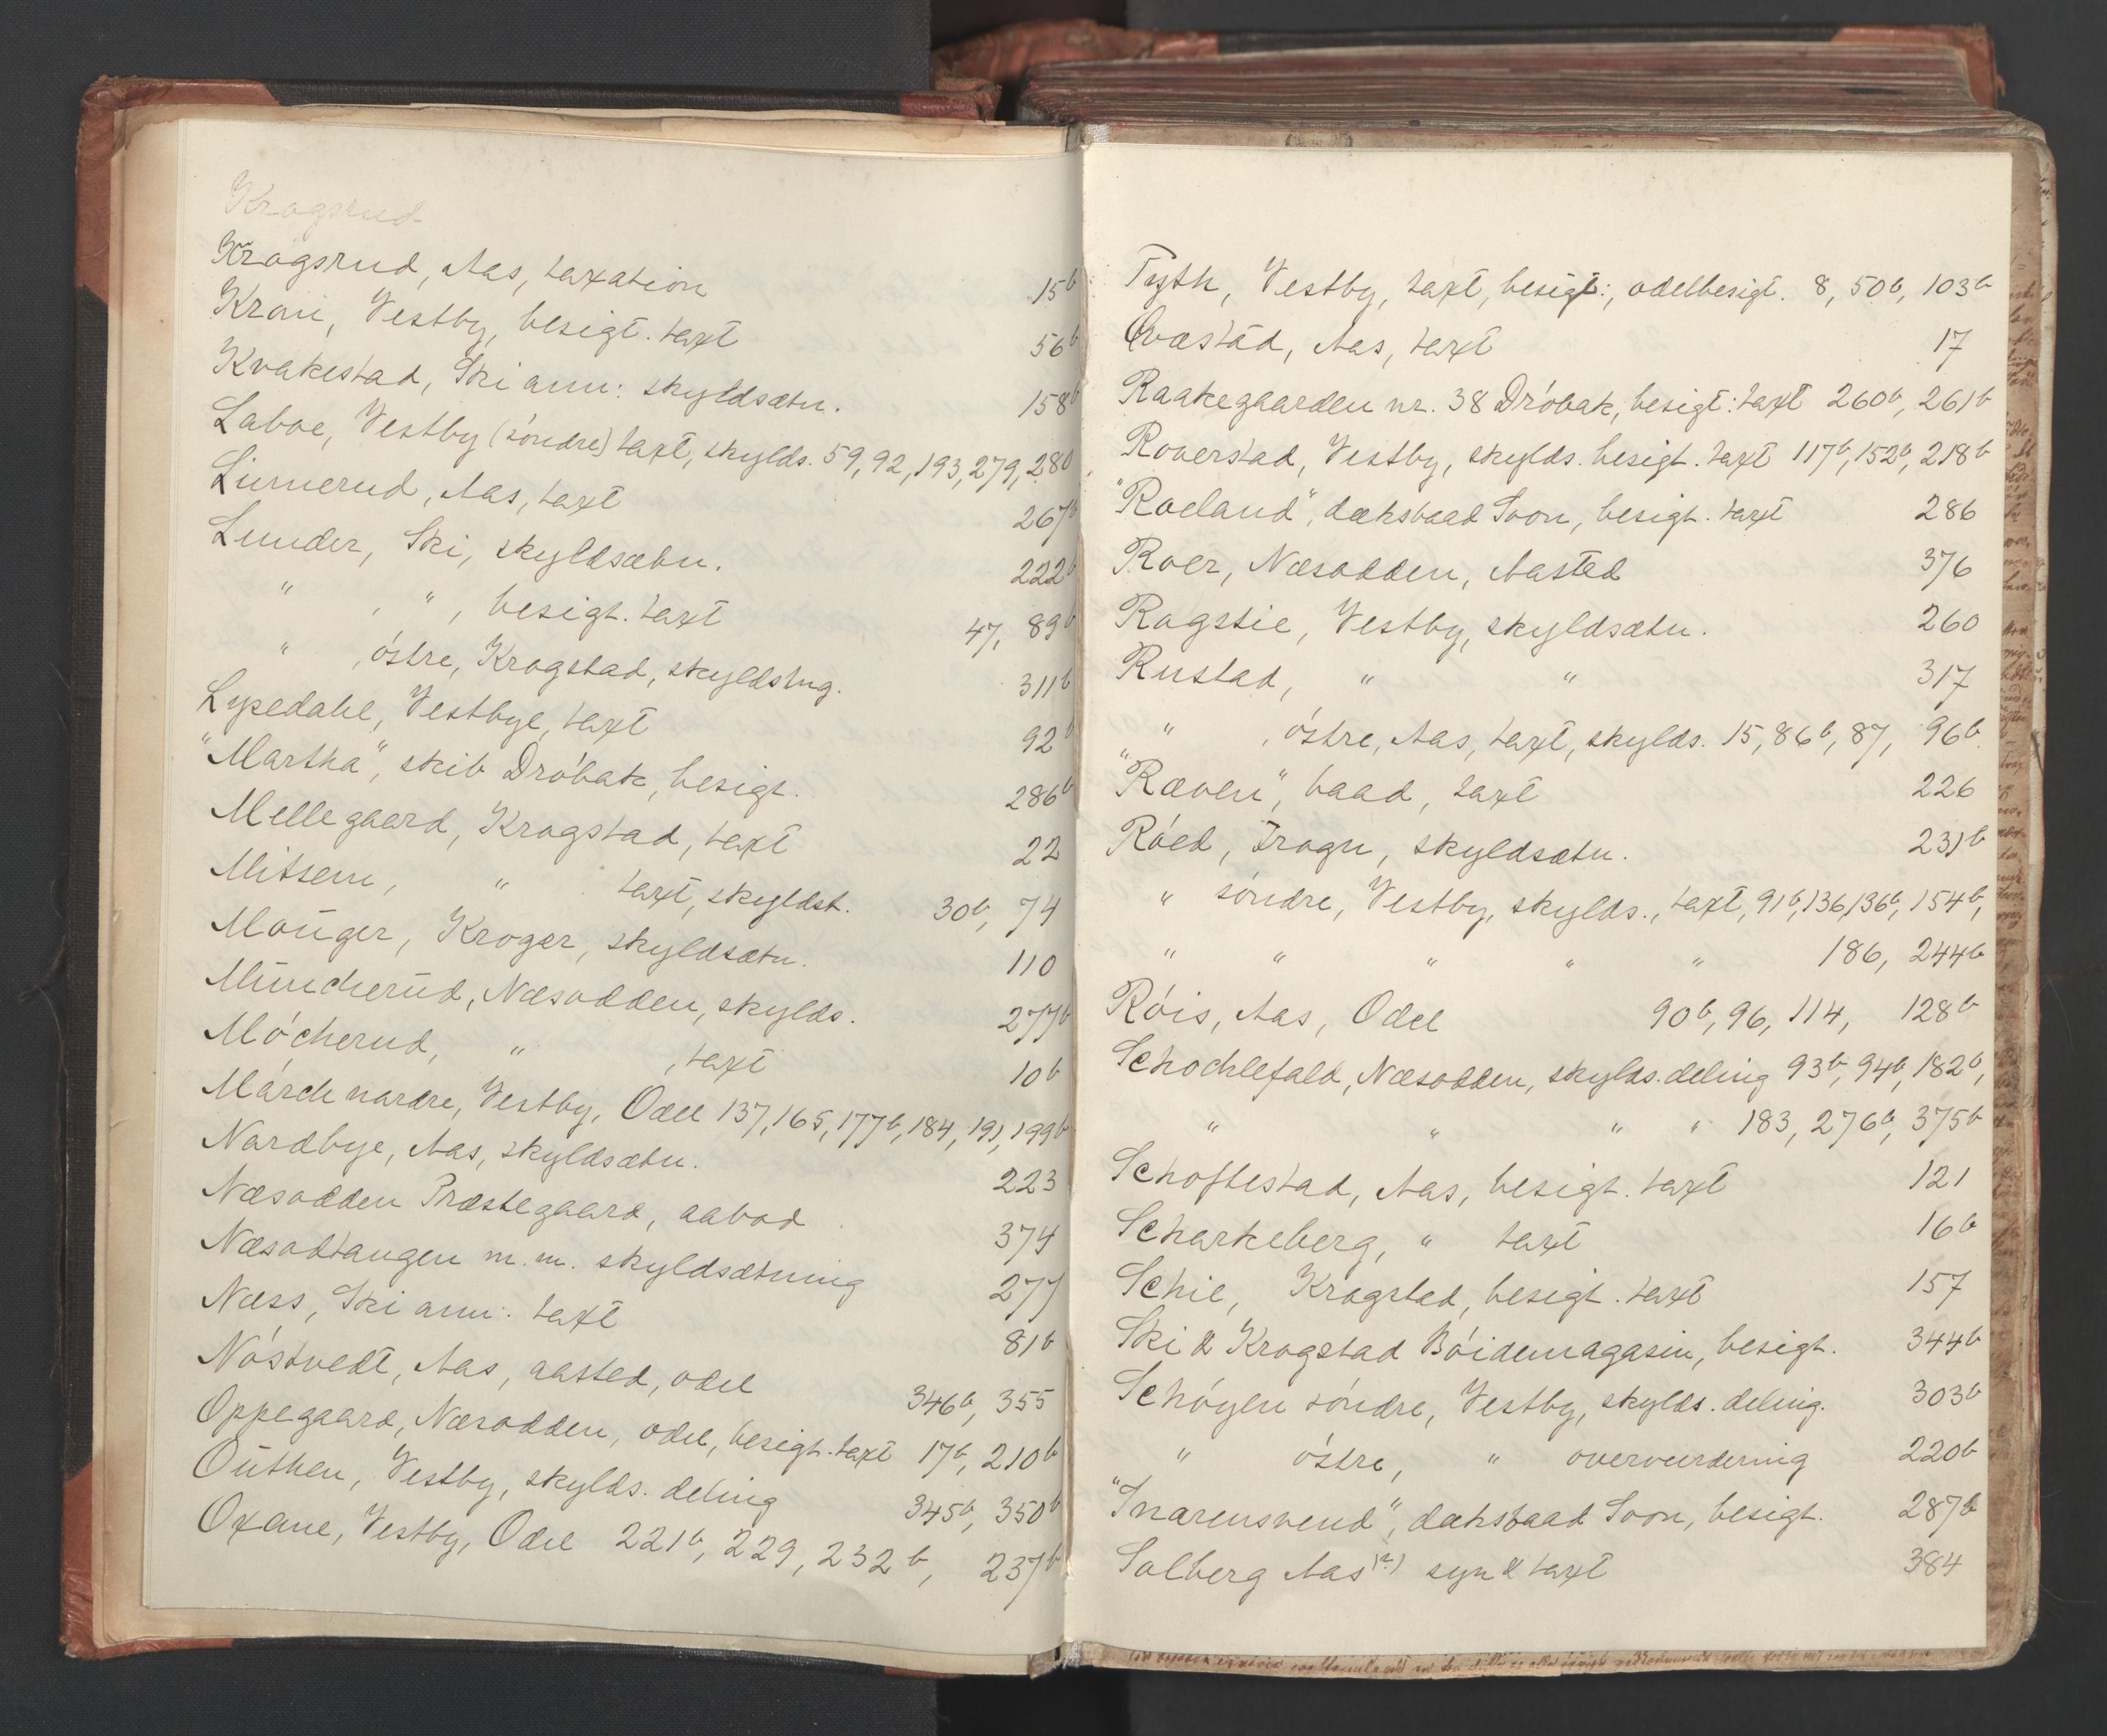 Krogsrud
Krogsrud, Aas, taxation 15b
Kroni, Vestby, besigt. taxt 56b
Kvakestad, Ski ann: skyldsætn. 158b
Laboe, Vestby (söndre) taxt, skylds. 59, 92, 193, 279, 280
Limerud, Aas, taxt 267b
Lunder, Ski, skyldsætn. 222b
" , " , besigt. taxt 47, 89b
" , östre, Krogstad, skyldstng. 311b
Lysedahl, Vestbye, taxt 92b
"Martha", skib Dröbak, besigt. 286b
Mellegaard, Krogstad, taxt 22
Mitsem, " taxt, skyldst. 30b, 74
Mouger, Kroger, skyldsætn. 110
Müncherud, Næsodden, skylds. 277b
Möcherud, " , taxt 10b
Mörch nordre, Vestby, Odel 137, 165, 177b, 184, 191, 199b
Nordbye, Aas, skyldsætn. 223
Næsodden Præstegaard, aabod 374
Næsodtangen m.m. skyldsætning 277
Næss, Ski ann: taxt 81b
Nöstvedt, Aas, aasted, odel 346b, 355
Oppegaard, Næsodden, odel, besigt. taxt 17b, 210b
Outhen, Vestby, skylds. deling 345b, 350b
Oxane, Vestby, Odel 221b, 229, 232b, 237b
Pyth, Vestby, taxt, besigt:, odelbesigt. 8, 50b, 103b
Qvæstad, Aas, taxt 17
Raakegaarden nr. 38 Dröbak, besigt: taxt 260b, 261b
Roverstad, Vestby, skylds. besigt. taxt 117b, 152b, 218b
"Roeland", dæksbaad Soon, besigt. taxt 286
Roer, Næsodden, Aasted 376
Rogstie, Vestby, skyldsætn. 260
Rustad, " " 317
" , östre, Aas, taxt, skylds. 15, 86b, 87, 96b.
"Ræven", baad, taxt 226
Röed, Frogn, skyldsætn. 231b
" söndre, Vestby, skylds., taxt, 91b, 136, 136b, 154b,
" " " " " 186, 244b
Röis, Aas, Odel 90b, 96, 114, 128b
Schochlefald, Næsodden, skylds. deling 93b, 94b, 182b,
" " " " 183, 276b, 375b
Schoftestad, Aas, besigt. taxt 121
Scharkeberg, " taxt 16b
Schie, Krogstad, besigt. taxt 157
Ski & Krogstad Böidemagasin, besigt. 344b
Schöyen söndre, Vestby, skylds. deling. 303b
" östre, " overvurdering 220b
"Snarensvend", dæksbaad Soon, besigt. 287b
Solberg Aas (?) syn & taxt 384